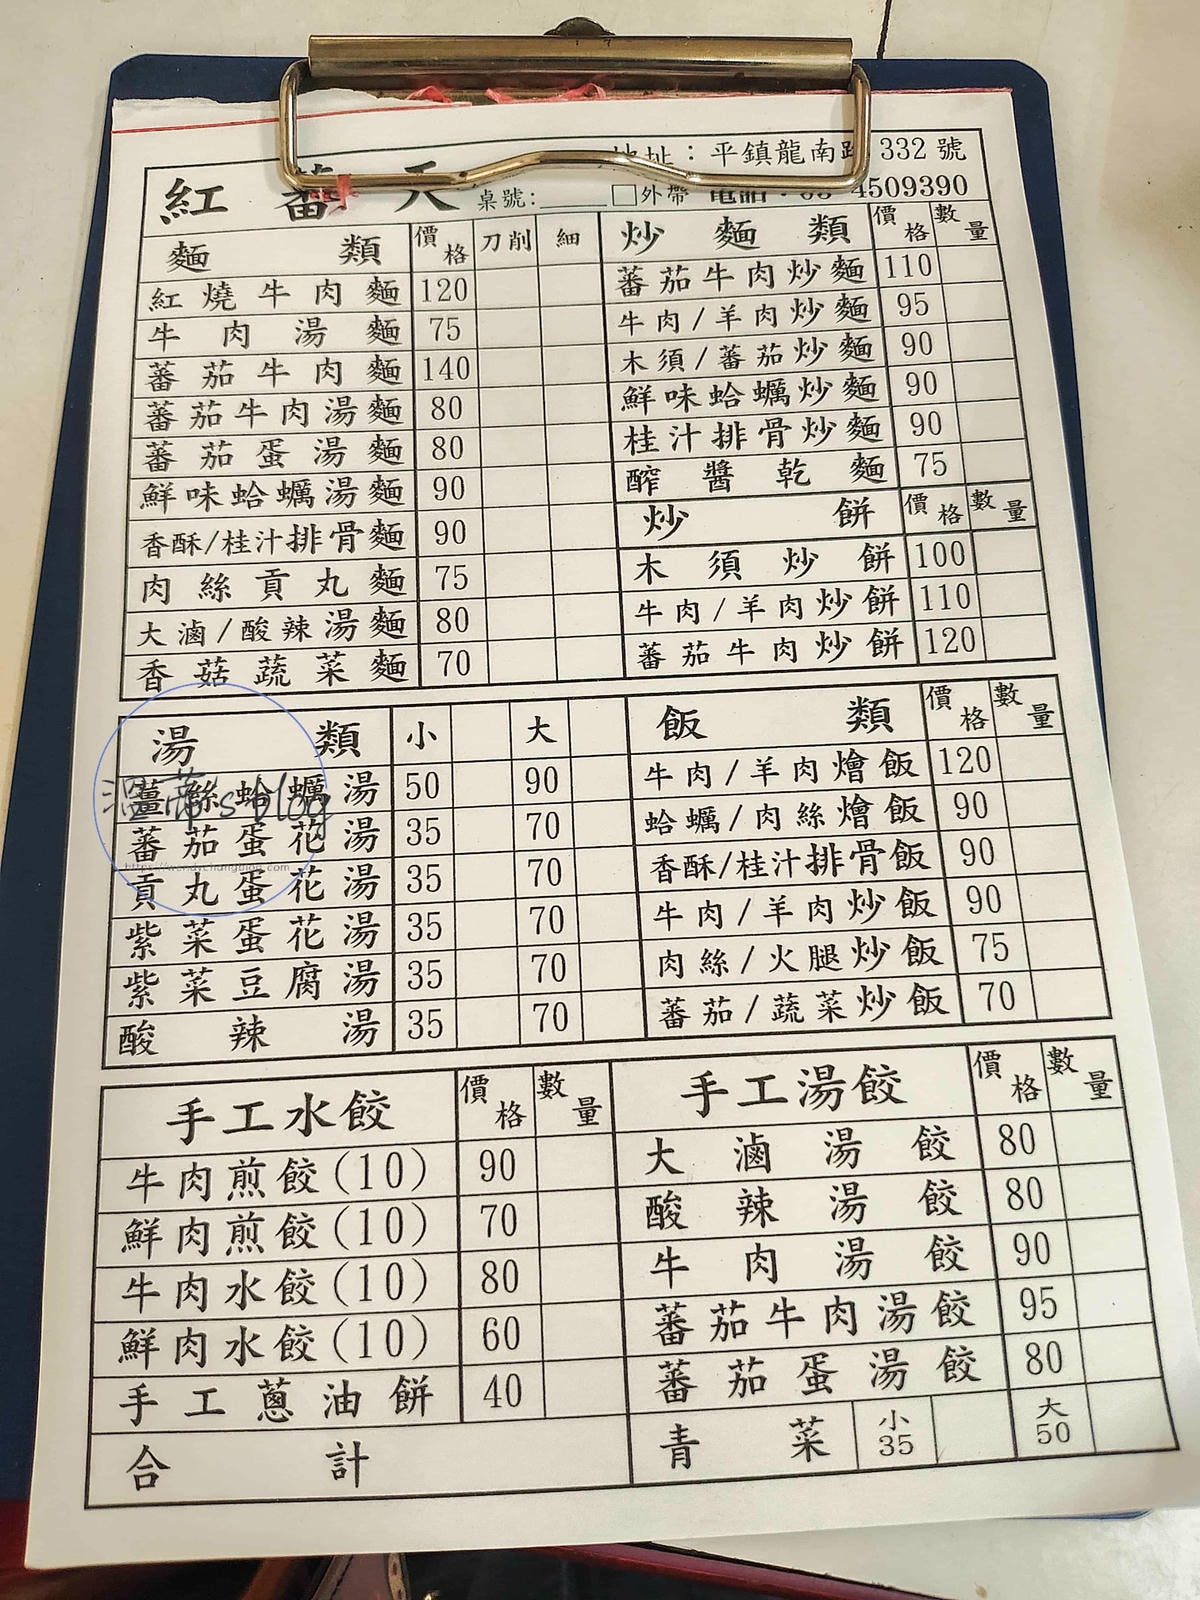 地址：平鎮龍南路 332 號
紅 蕃 天 桌號: 外帶 電話：03-4509390
麵類 價格 刀削 細
紅燒牛肉麵 120
牛肉湯麵 75
蕃茄牛肉麵 140
蕃茄牛肉湯麵 80
蕃茄蛋湯麵 80
鮮味蛤蠣湯麵 90
香酥/桂汁排骨麵 90
肉絲貢丸麵 75
大滷/酸辣湯麵 80
香菇蔬菜麵 70
炒麵類 價格 數量
蕃茄牛肉炒麵 110
牛肉/羊肉炒麵 95
木須/蕃茄炒麵 90
鮮味蛤蠣炒麵 90
桂汁排骨炒麵 90
醡醬乾麵 75
炒餅 價格 數量
木須炒餅 100
牛肉/羊肉炒餅 110
蕃茄牛肉炒餅 120
湯類 小 大
薑絲蛤蠣湯 50 90
蕃茄蛋花湯 35 70
貢丸蛋花湯 35 70
紫菜蛋花湯 35 70
紫菜豆腐湯 35 70
酸辣湯 35 70
飯類 價格 數量
牛肉/羊肉燴飯 120
蛤蠣/肉絲燴飯 90
香酥/桂汁排骨飯 90
牛肉/羊肉炒飯 90
肉絲/火腿炒飯 75
蕃茄/蔬菜炒飯 70
手工水餃 價格 數量
牛肉煎餃(10) 90
鮮肉煎餃(10) 70
牛肉水餃(10) 80
鮮肉水餃(10) 60
手工蔥油餅 40
合計
手工湯餃 價格 數量
大滷湯餃 80
酸辣湯餃 80
牛肉湯餃 90
蕃茄牛肉湯餃 95
蕃茄蛋湯餃 80
青菜 小 35 大 50
's blog
https://wendychangblog.com